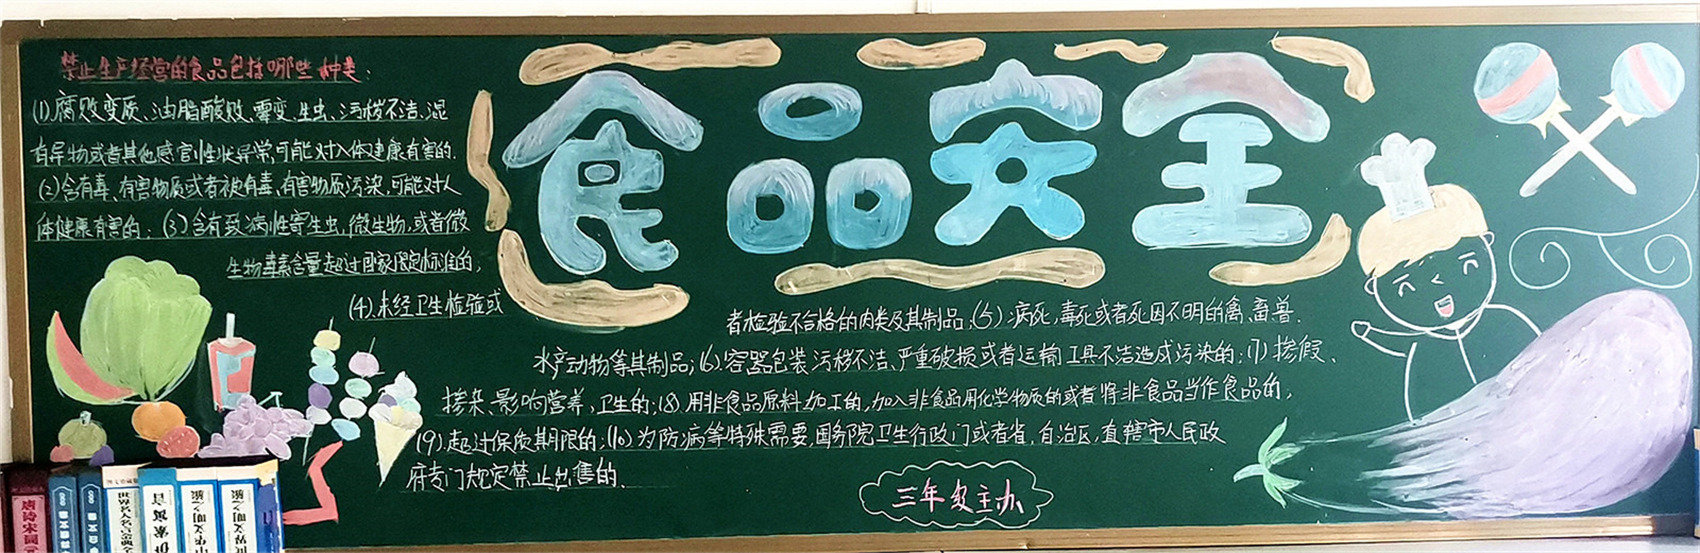 食品安全
禁止生产经营的食品包括哪些种类:
(1).腐败变质、油脂酸败、霉变、生虫、污秽不洁、混
有异物或者其他感官性状异常,可能对人体健康有害的.
(2)含有毒、有害物质或者被有毒、有害物质污染,可能对人
体健康有害的;(3)含有致病性寄生虫,微生物,或者微
生物毒素含量超过国家限定标准的;
(4).未经卫生检验或
者检验不合格的肉类及其制品;(5);病死,毒死或者死因不明的禽、畜、兽、
水产动物等其制品;(6).容器包装污秽不洁、严重破损或者运输工具不洁造成污染的;(7)掺假、
掺杂、影响营养、卫生的;(8).用非食品原料加工的,加入非食品用化学物质的或者将非食品当作食品的,
(9).超过保质期限的;(10)为防病等特殊需要,国务院卫生行政门或者省,自治区,直辖市人民政
府专门规定禁止出售的.
三年级主办
唐诗宋词元
世界名人名言金典全